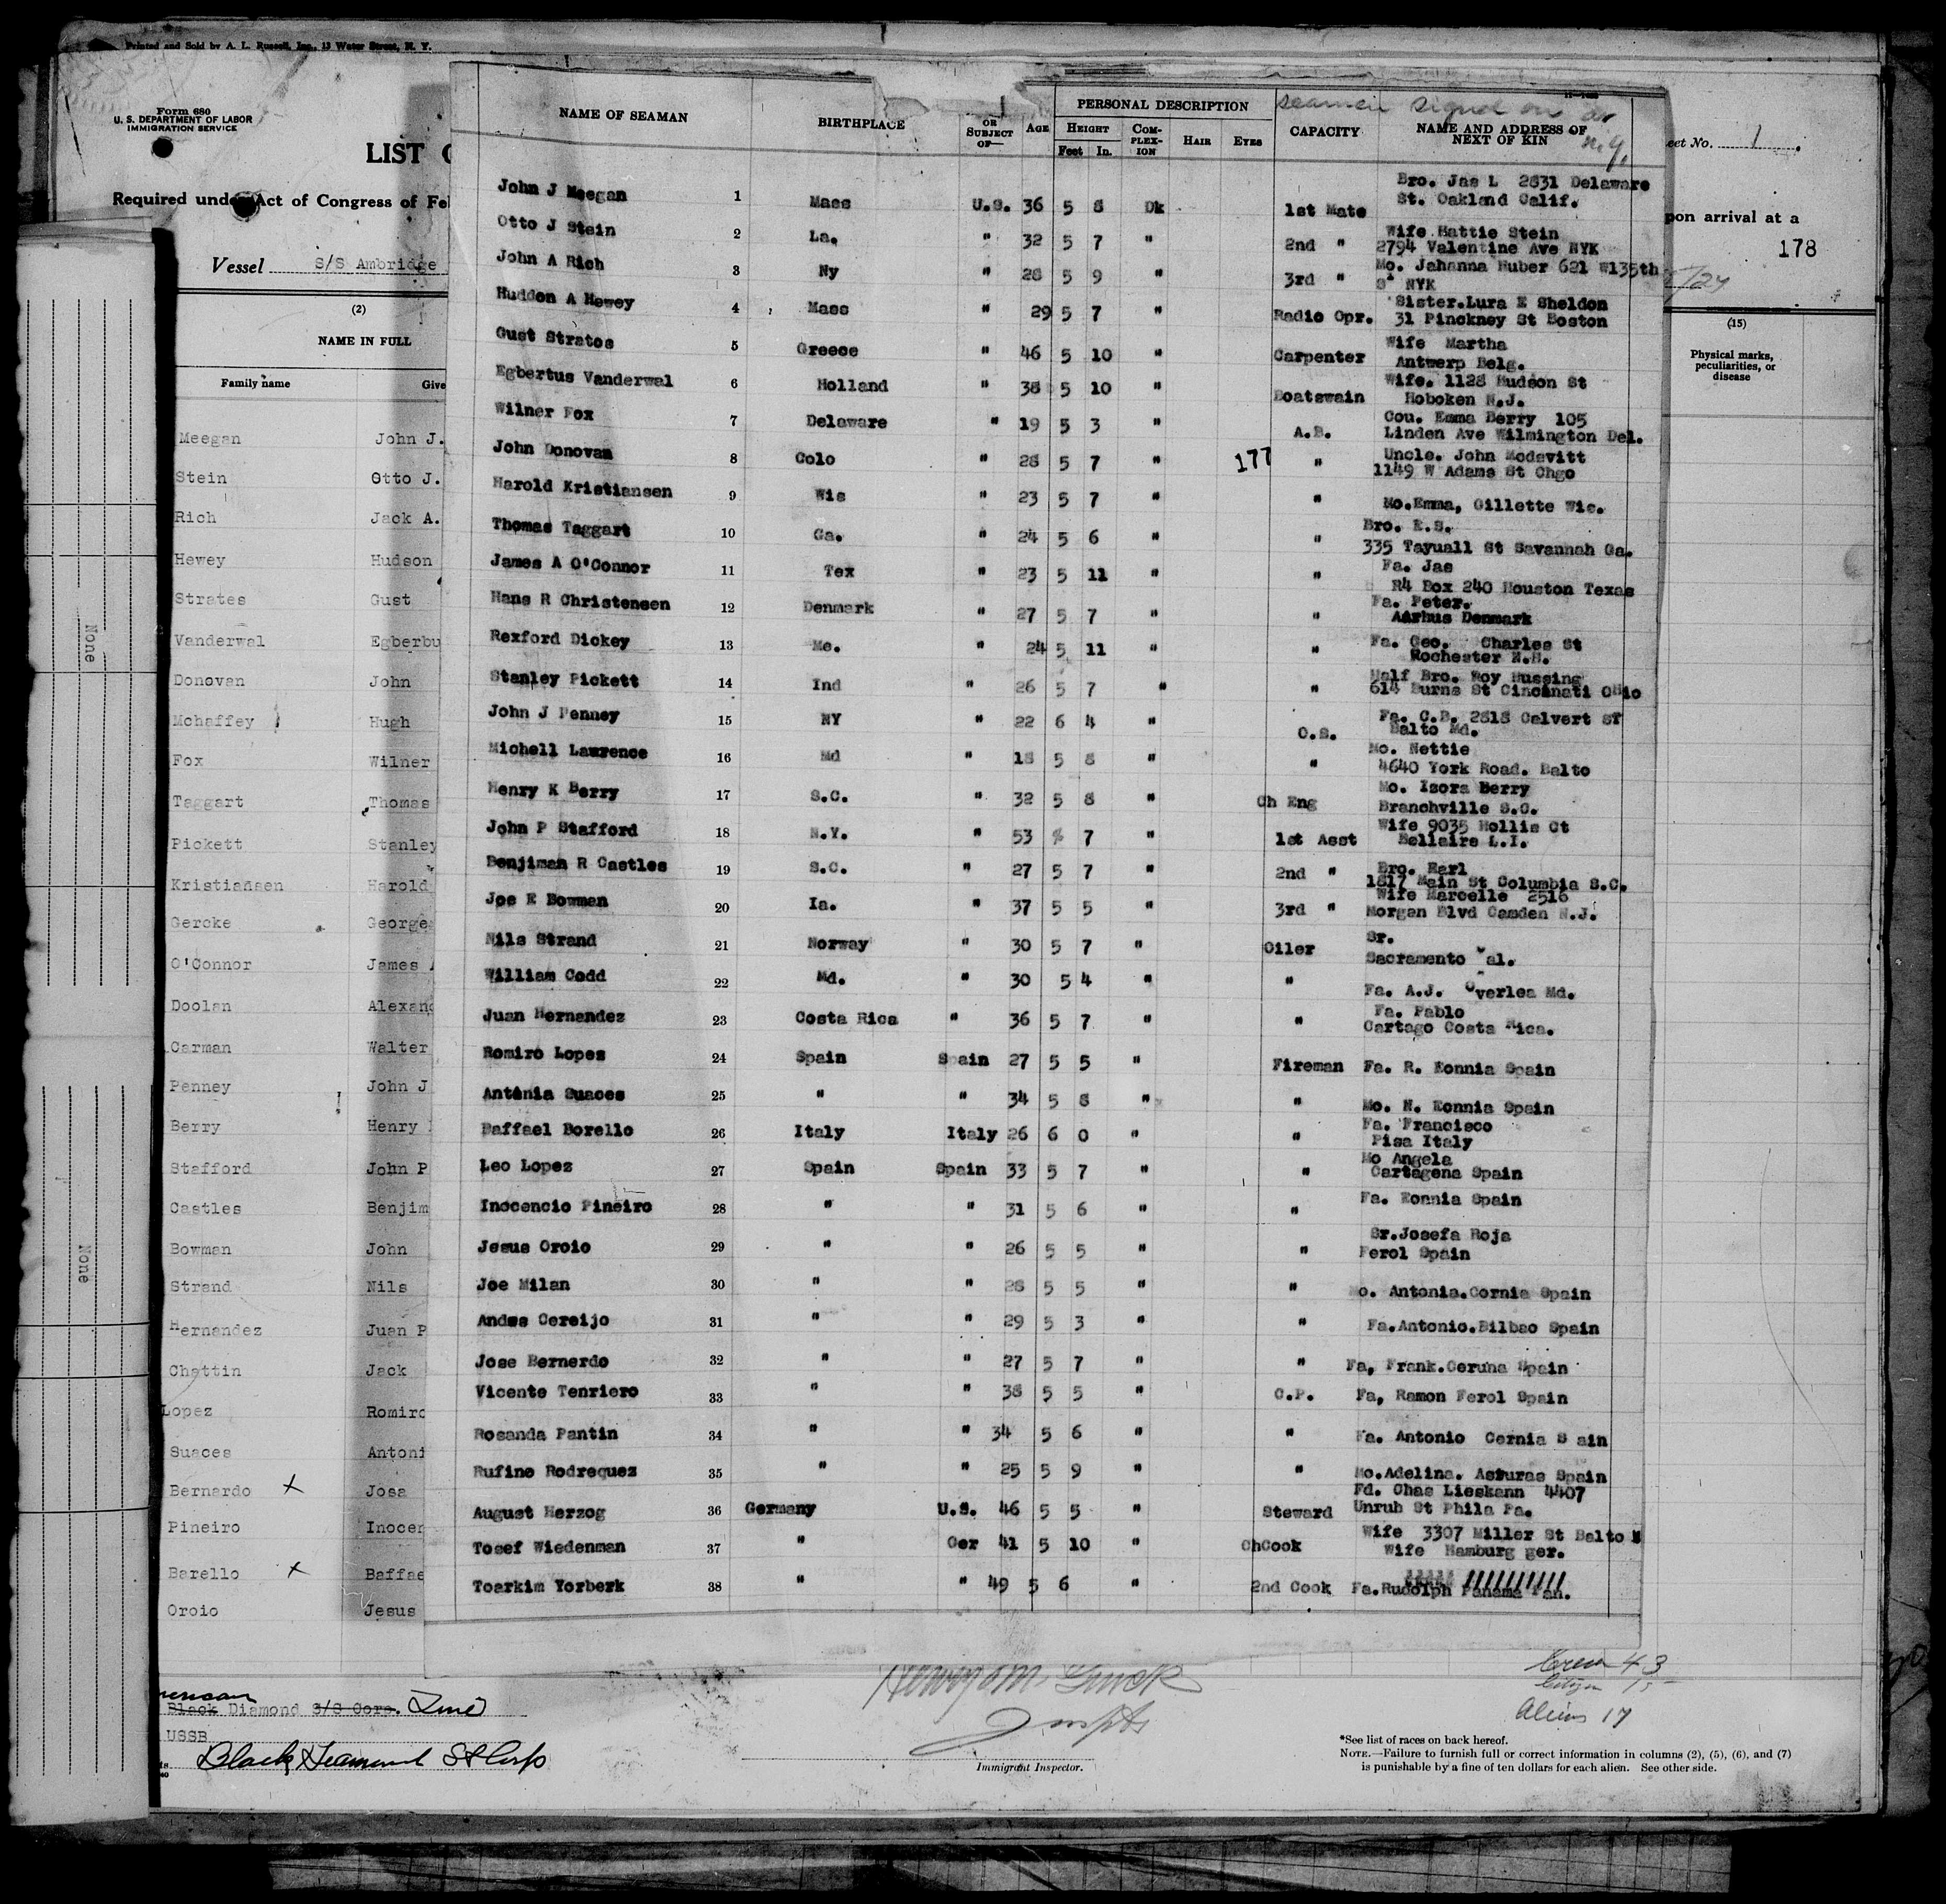 Printed and Sold by A. L. Russell, Inc., 13 Water Street, N. Y.
Form 680
U. S. DEPARTMENT OF LABOR
IMMIGRATION SERVICE
LIST
Required under Act of Congress of Fe
Vessel S/S Ambridge
eet No. 1
pon arrival at a
178
(2)
NAME IN FULL
Family name Give
(15)
Physical marks, peculiarities, or disease
None
None
Meegan John J.
Stein Otto J.
Rich Jack A.
Hewey Hudson
Strates Gust
Vanderwal Egberbu
Donovan John
Mchaffey Hugh
Fox Wilner
Taggart Thomas
Pickett Stanley
Kristiansen Harold
Gercke George
O'Connor James
Doolan Alexand
Carman Walter
Penney John J
Berry Henry
Stafford John P
Castles Benjim
Bowman John
Strand Nils
Hernandez Juan P
Chattin Jack
Lopez Romiro
Suaces Antoni
Bernardo X Josa
Pineiro Inocen
Barello X Baffae
Oroio Jesus
seamen signed on at
N.Y.
NAME OF SEAMAN BIRTHPLACE OR SUBJECT OF— AGE PERSONAL DESCRIPTION CAPACITY NAME AND ADDRESS OF NEXT OF KIN
HEIGHT Feet In. COMPLEXION HAIR EYES
John J Meegan 1 Mass U.S. 36 5 8 Dk 1st Mate Bro. Jas L 2831 Delaware St. Oakland Calif.
Otto J Stein 2 La. " 32 5 7 " 2nd " Wife Hattie Stein 2794 Valentine Ave NYK
John A Rich 3 Ny " 28 5 9 " 3rd " Mo. Jahanna Huber 621 W135th St NYK
Hudden A Hewey 4 Mass " 29 5 7 " Radio Opr. Sister.Lura E Sheldon 31 Pinckney St Boston
Gust Stratos 5 Greece " 46 5 10 " Carpenter Wife Martha Antwerp Belg.
Egbertus Vanderwal 6 Holland " 38 5 10 " Boatswain Wife. 1128 Hudson St Hoboken N.J.
Wilner Fox 7 Delaware " 19 5 3 " A.B. Cou. Emma Berry 105 Linden Ave Wilmington Del.
John Donovan 8 Colo " 28 5 7 " 177 " Uncle. John Mcdavitt 1149 W Adams St Chgo
Harold Kristiansen 9 Wis " 23 5 7 " " Mo.Emma, Gillette Wis.
Thomas Taggart 10 Ga. " 24 5 6 " " Bro. E.S. 335 Tayuall St Savannah Ga.
James A O'Connor 11 Tex " 23 5 11 " " Fa. Jas R4 Box 240 Houston Texas
Hans R Christensen 12 Denmark " 27 5 7 " " Fa. Peter. Aarhus Denmark
Rexford Dickey 13 Me. " 24 5 11 " " Fa. Geo. Charles St Rochester N.H.
Stanley Pickett 14 Ind " 26 5 7 " " Half Bro. Roy Hussing 614 Burns St Cincinati OHio
John J Penney 15 NY " 22 6 4 " O.S. Fa. C.B. 2818 Calvert ST Balto Md.
Michell Lawrence 16 Md " 18 5 8 " " Mo. Nettie 4640 York Road. Balto
Henry K Berry 17 S.C. " 32 5 8 " Ch Eng Mo. Izora Berry Branchville S.C.
John P Stafford 18 N.Y. " 53 5 7 " 1st Asst Wife 9035 Hollis Ct Bellaire L.I.
Benjiman R Castles 19 S.C. " 27 5 7 " 2nd " Bro. Earl 1817 Main St Columbia S.C.
Joe E Bowman 20 Ia. " 37 5 5 " 3rd " Wife Marcelle 2516 Morgan Blvd Camden N.J.
Nils Strand 21 Norway " 30 5 7 " Oiler Sr. Sacramento Cal.
William Codd 22 Md. " 30 5 4 " " Fa. A.J. Overlea Md.
Juan Hernandez 23 Costa Rica " 36 5 7 " " Fa. Pablo Cartago Costa Rica.
Romiro Lopez 24 Spain Spain 27 5 5 " Fireman Fa. R. Eonnia Spain
Anténia Suaces 25 " " 34 5 8 " " Mo. N. Eonnia Spain
Baffael Borello 26 Italy Italy 26 6 0 " " Fa. Francisco Pisa Italy
Leo Lopez 27 Spain Spain 33 5 7 " " Mo Angela Cartagena Spain
Inocencio Pineiro 28 " " 31 5 6 " " Fa. Eonnia Spain
Jesus Oroio 29 " " 26 5 5 " " Sr.Josefa Roja Ferol Spain
Joe Milan 30 " " 28 5 5 " " Mo. Antonia.Cornia Spain
Andes Cereijo 31 " " 29 5 3 " " Fa.Antonio.Bilbao Spain
Jose Bernerdo 32 " " 27 5 7 " " Fa, Frank.Ceruna Spain
Vicente Tenriero 33 " " 38 5 5 " C.P. Fa, Ramon Ferol Spain
Rosanda Pantin 34 " " 34 5 6 " " Fa. Antonio Cernia S ain
Rufino Rodrequez 35 " " 25 5 9 " " Mo.Adelina. Asturas Spain
August Herzog 36 Germany U.S. 46 5 5 " Steward Fd. Chas Lieskann 4407 Unruh St Phila Pa.
Tosef Wiedenman 37 " Ger 41 5 10 " ChCook Wife 3307 Miller St Balto M Wife Hamburg ger.
Toarkim Yorberk 38 " " 49 5 6 " 2nd Cook Fa.Rudolph Panama Pan.
Black Diamond S/S Corp. Line
USSB
Black Diamond SS Corp
Inspts
Immigrant Inspector.
Crew 43
Citizen
Aliens 17
*See list of races on back hereof.
NOTE.—Failure to furnish full or correct information in columns (2), (5), (6), and (7)
is punishable by a fine of ten dollars for each alien. See other side.